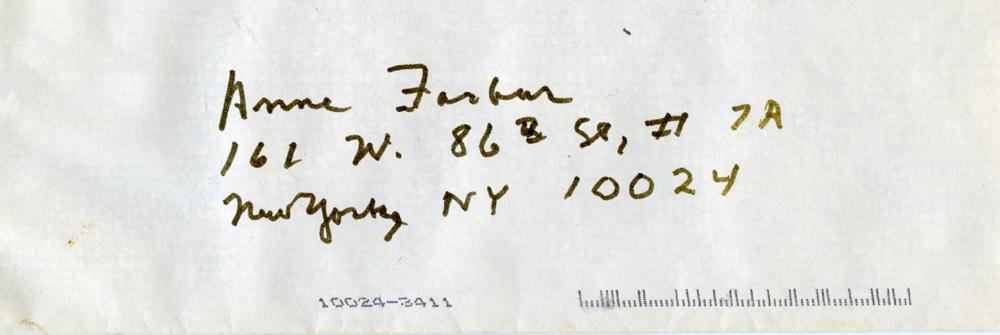 Anne Farber
161 W. 86th St, # 7A
New York, NY 10024
10024-3411